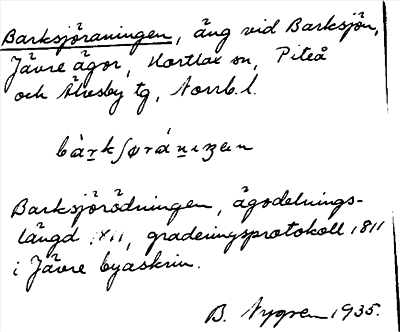 Barksjöraningen, äng vid Barksjön,
Jävre ägor, Hortlax sn, Piteå
och Älvsby tg, Norrb. l.
bàrkʃørániŋən
Barksjörödningen, ägodelnings-
längd XII, graderingsprotokoll 1811
i Jävre byaskrin.
B. Nygren 1935.